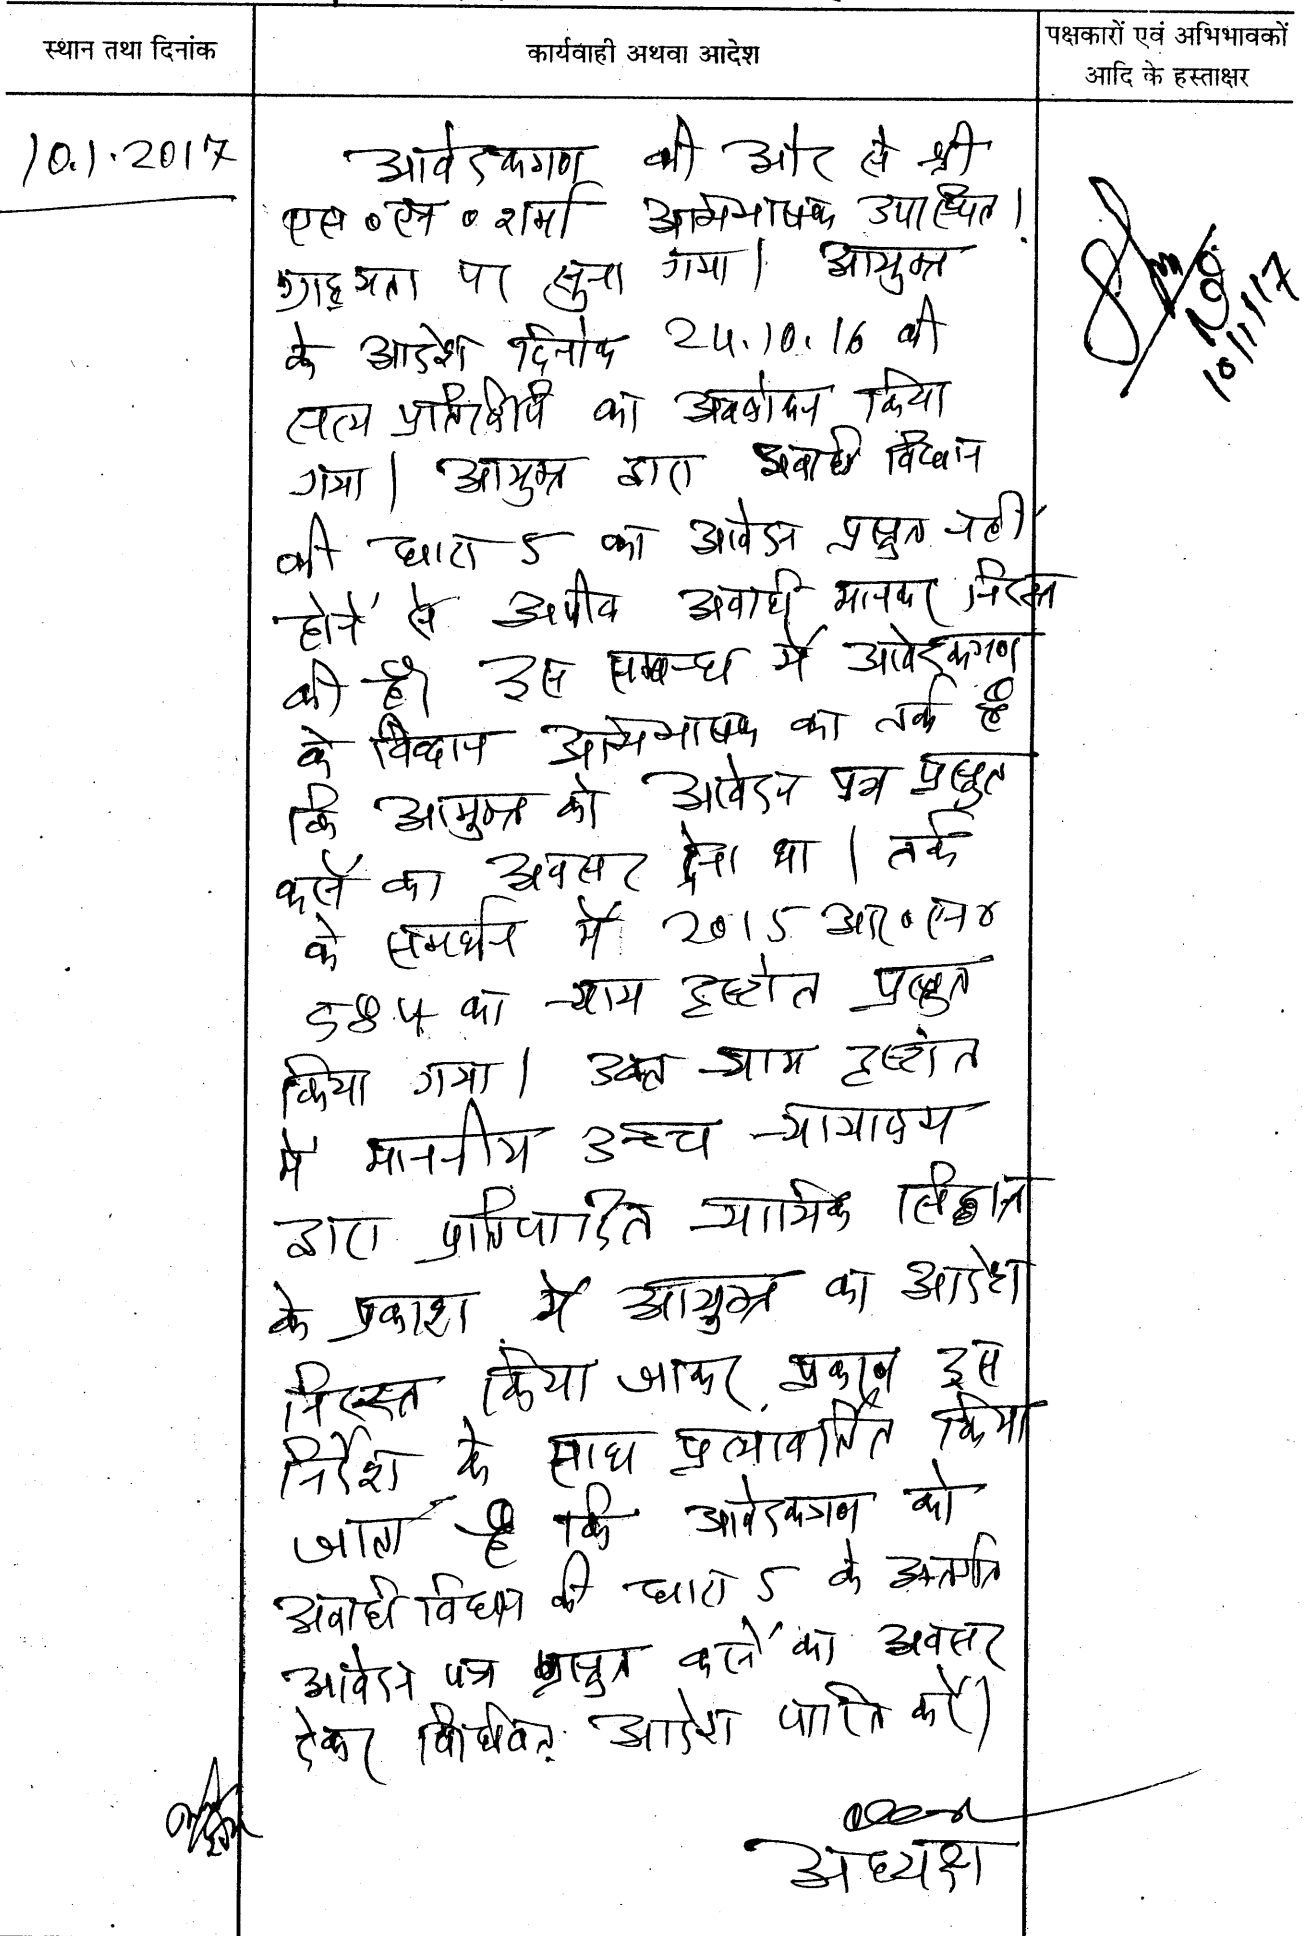 स्थान तथा दिनांक
कार्यवाही अथवा आदेश
पक्षकारों एवं अभिभावकों
आदि के हस्ताक्षर
10.1.2017
आवेदकगण की ओर से श्री
एस०एन०शर्मा अभिभाषक उपस्थित।
ग्राह्यता पर सुना गया। आयुक्त
के आदेश दिनांक 24.10.16 की
सत्य प्रतिलिपि का अवलोकन किया
गया। आयुक्त द्वारा अवधि विधान
की धारा 5 का आवेदन प्रस्तुत नहीं
होने से अपील अवधि मानकर निरस्त
की है। इस सम्बन्ध में आवेदकगण
के विद्वान अभिभाषक का तर्क है
कि आयुक्त को आवेदन पत्र प्रस्तुत
करने का अवसर देना था। तर्क
के समर्थन में 2015 आर०एन०
584 का न्याय दृष्टांत प्रस्तुत
किया गया। उक्त न्याय दृष्टांत
में माननीय उच्च न्यायालय
द्वारा प्रतिपादित न्यायिक सिद्धांत
के प्रकाश में आयुक्त का आदेश
निरस्त किया जाकर प्रकरण इस
निर्देश के साथ प्रत्यावर्तित किया
जाता है कि आवेदकगण को
अवधि विधान की धारा 5 के अन्तर्गत
आवेदन पत्र प्रस्तुत करने का अवसर
देकर विधिवत् आदेश पारित करें।
अध्यक्ष
10/1/17